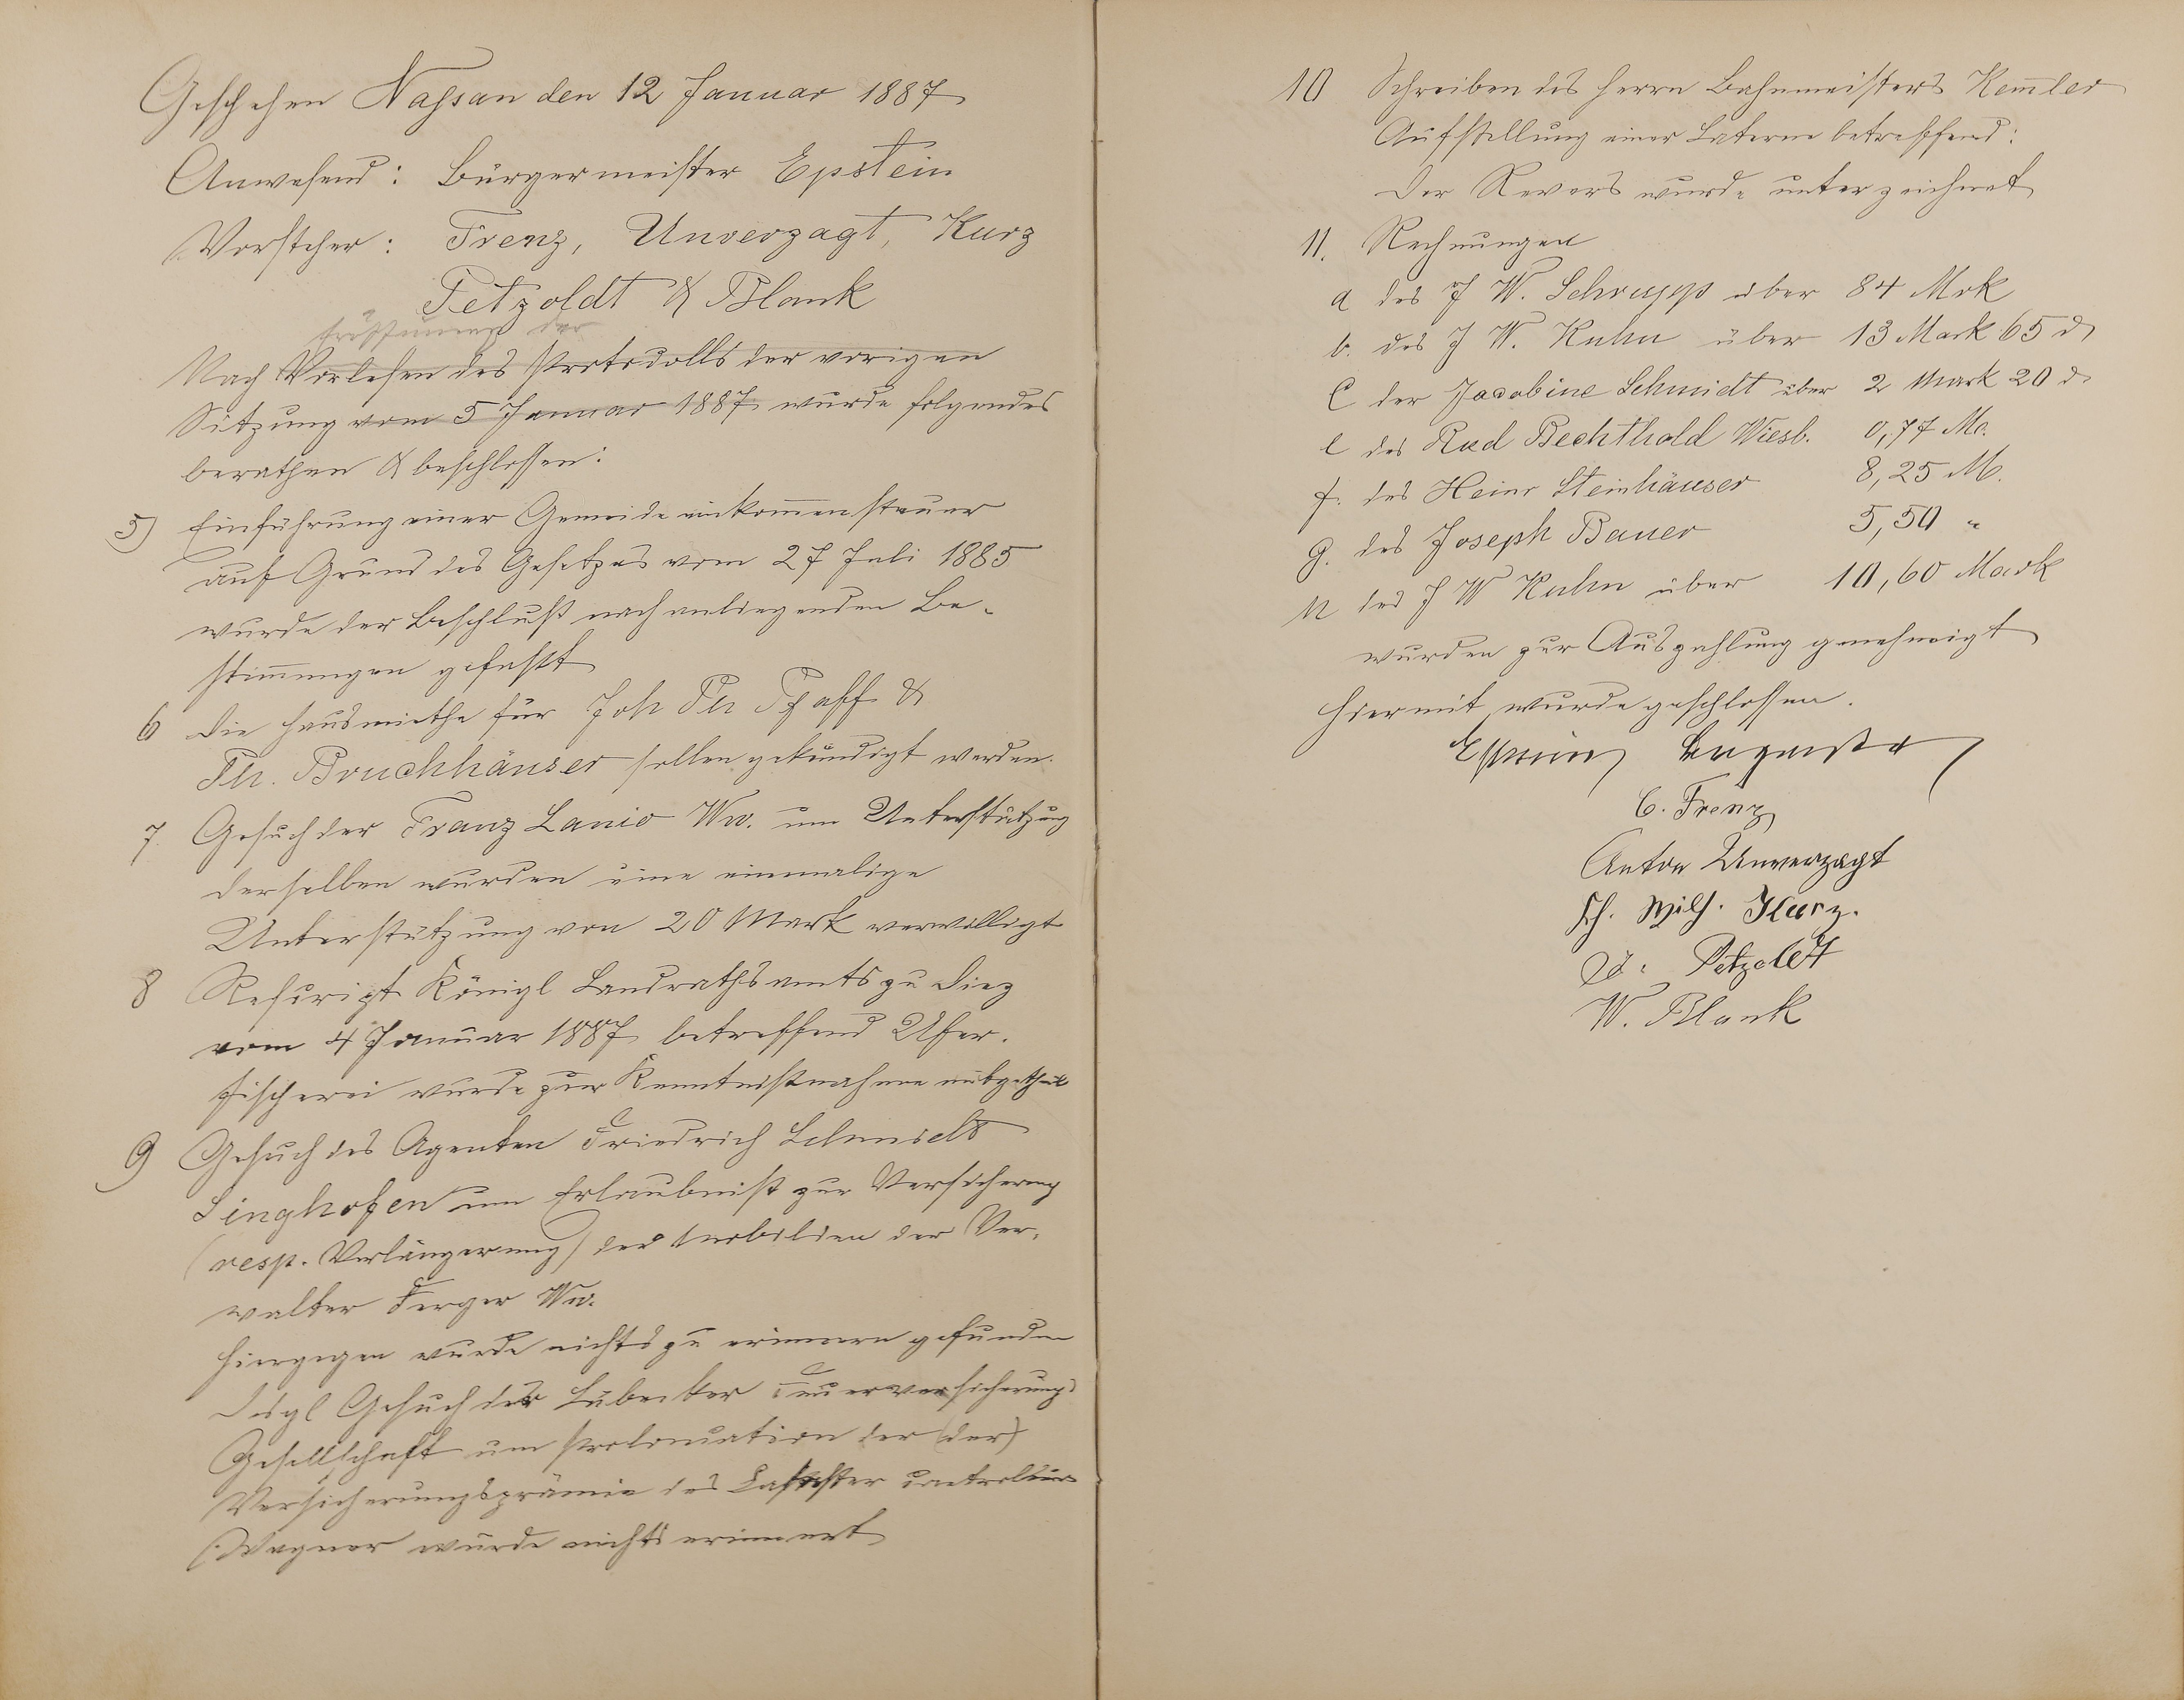 Geschehen Nassau den 12 Januar 1887
Anwesend: Bürgermeister Epstein
Vorsteher: Frenz, Unverzagt, Kurz
Petzoldt & Blank
Eröffnung der
Nach Vorlesen des Protocolls der vorigen
Sitzung vom 5 Januar 1887 wurde folgendes
berathen & beschlossen:
5) Einführung einer Gemeindeeinkom̅ensteuer
auf Grund des Gesetzes vom 27 Juli 1885
wurde der Beschluß nach anliegenden Be-
stim̅ungen gefaßt
6 Die Hausmiethe für Joh Ph Pfaff &
Ph. Bruchhäuser sollen gekündigt werden.
7. Gesuch der Franz Lanio Ww. um Unterstützung
derselben wurden eine einmalige
Unterstützung von 20 Mark verwilligt
8 Rescript Königl Landrathsamts zu Diez
vom 4 Januar 1887 betreffend Ufer-
fischerei wurde zur Kenntnißnahme mitgetheilt
9 Gesuch des Agenten Friedrich Schmidt
Singhofen um Erlaubniß zur Versicherung
(resp. Verlängerung) der Mobilien der Ver-
walter Ferger Ww.
Hiergegen wurde nichts zu erinnern gefunden
Desgl Gesuch der Lübecker Feuerversicherungs
Gesellschaft um Prolongation der (der)
Versicherungsprämie des Kataster Controleur
Wagner wurde nichts erinnert
10 Schreiben des Herrn Bahnmeisters Kem̅ler
Aufstellung einer Laterne betreffend:
Der Revers wurde unterzeichnet
11. Rechnungen
a des J W. Schrupp über 84 Mrk
b. des J W. Kuhn über 13 Mark 65 d
C der Jacobine Schmidt über 2 Mark 20 d
e des Rud Bechthold Wiesb. 0,77 M.
f. des Heinr Steinhäuser 8,25 M.
g. des Joseph Bauer 5,50 "
h des J W Kuhn über 10,60 Mark
wurden zur Auszahlung genehmigt
Hiermit wurde geschlossen.
Epstein Bürgermstr
C. Frenz
Anton Unverzagt
Wilh. Kurz.
Petzoldt
W. Blank